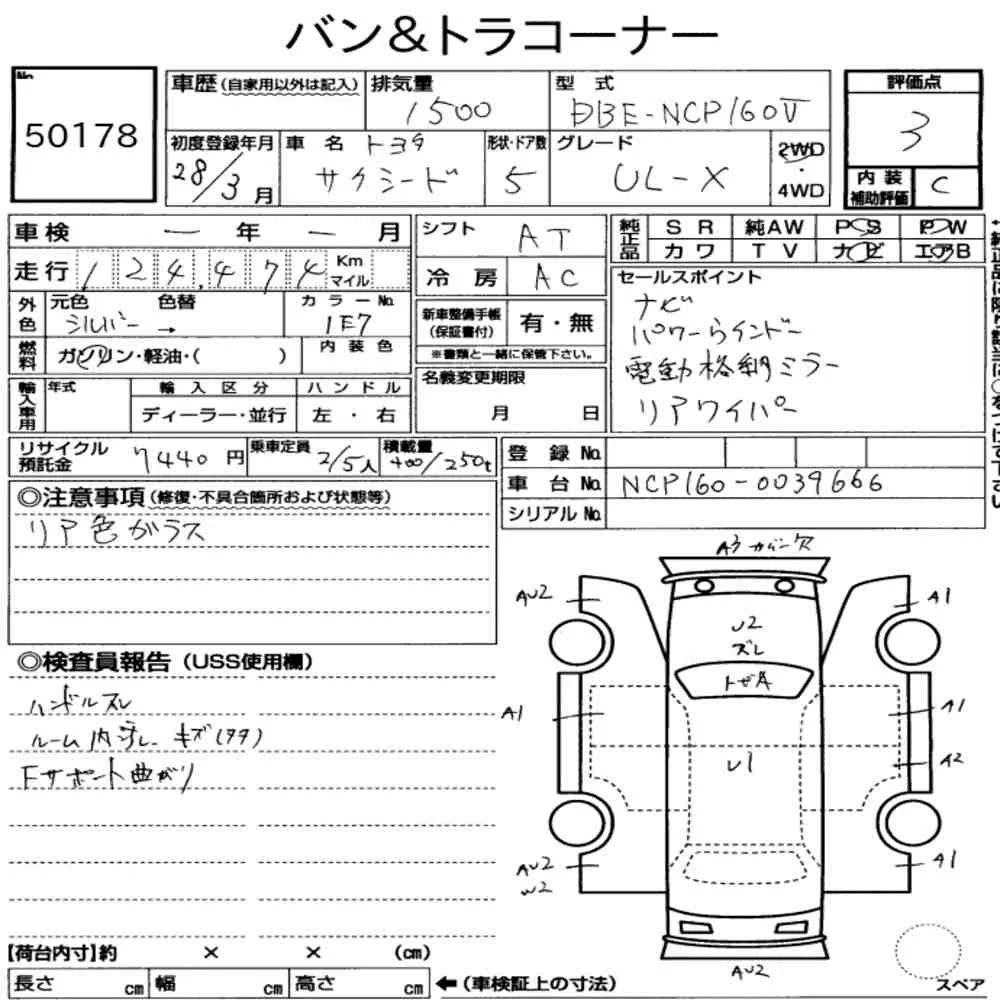 バン&トラコーナー
No.
50178
車歴(自家用以外は記入)
排気量
1500
型式
DBE-NCP160V
評価点
3
初度登録年月
28/3月
車名 トヨタ
サクシード
形状・ドア数
5
グレード
UL-X
2WD
・
4WD
内装
補助評価
C
車検 ー 年 ー 月
シフト AT
純正品
SR 純AW PS PW
カワ TV ナビ エアB
走行 124,474 Km
マイル
冷房 AC
セールスポイント
ナビ
パワーウインドー
電動格納ミラー
リアワイパー
外色
元色 色替
シルバー →
カラーNo.
1E7
新車整備手帳
(保証書付)
有・無
※書類と一緒に保管下さい。
燃料
ガソリン・軽油・( )
内装色
名義変更期限
月 日
輸入車用
年式
輸入区分
ディーラー・並行
ハンドル
左・右
リサイクル
預託金
7440円
乗車定員
2/5人
積載量
400/250t
登録No.
車台No. NCP160-0039666
シリアルNo.
◎注意事項(修復・不具合箇所および状態等)
リア色ガラス
◎検査員報告(USS使用欄)
ハンドルスレ
ルーム内汚レ キズ(タタ)
Fサポート曲がり
A3 カバー欠
AU2
A1
U2
ズレ
トビA
A1
A1
U1
A2
AU2
W2
A1
AU2
スペア
【荷台内寸】約 × × (cm)
長さ cm 幅 cm 高さ cm
←(車検証上の寸法)